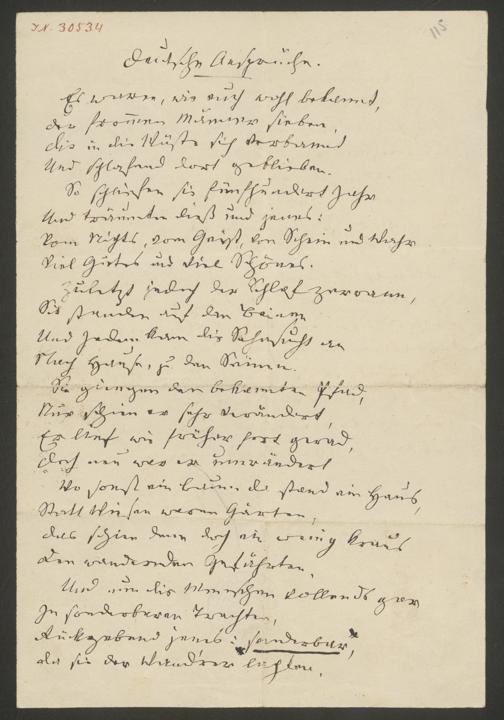 J.N. 30534
115
Deutsche Ansprüche.
Es waren, wie euch wohl bekannt,
der frommen Männer sieben,
die in die Wüste sich verbannt
Und schlafend dort geblieben.
So schliefen sie fünfhundert Jahr
Und träumten dieß und jenes:
Vom Nichts, vom Geist, von Schein und Wahr
Viel Gutes und viel Schönes.
Zuletzt jedoch der Schlaf zerrann,
Sie standen auf den Beinen
Und Jedem kam die Sehnsucht an
Nach Hause, zu den Seinen.
Sie giengen den bekannten Pfad,
Nur schien er sehr verändert,
Er lief wie früher fort gerad,
doch neu war er umrändert
Wo sonst ein Baum da stand ein Haus,
Statt Wiesen waren Gärten,
das schien denn doch ein wenig kraus
den wandernden Gefährten.
Und nun die Menschen vollends gar
In sonderbaren Trachten,
Rückgebend jenes: "sonderbar",
da sie der Wandrer lachten.